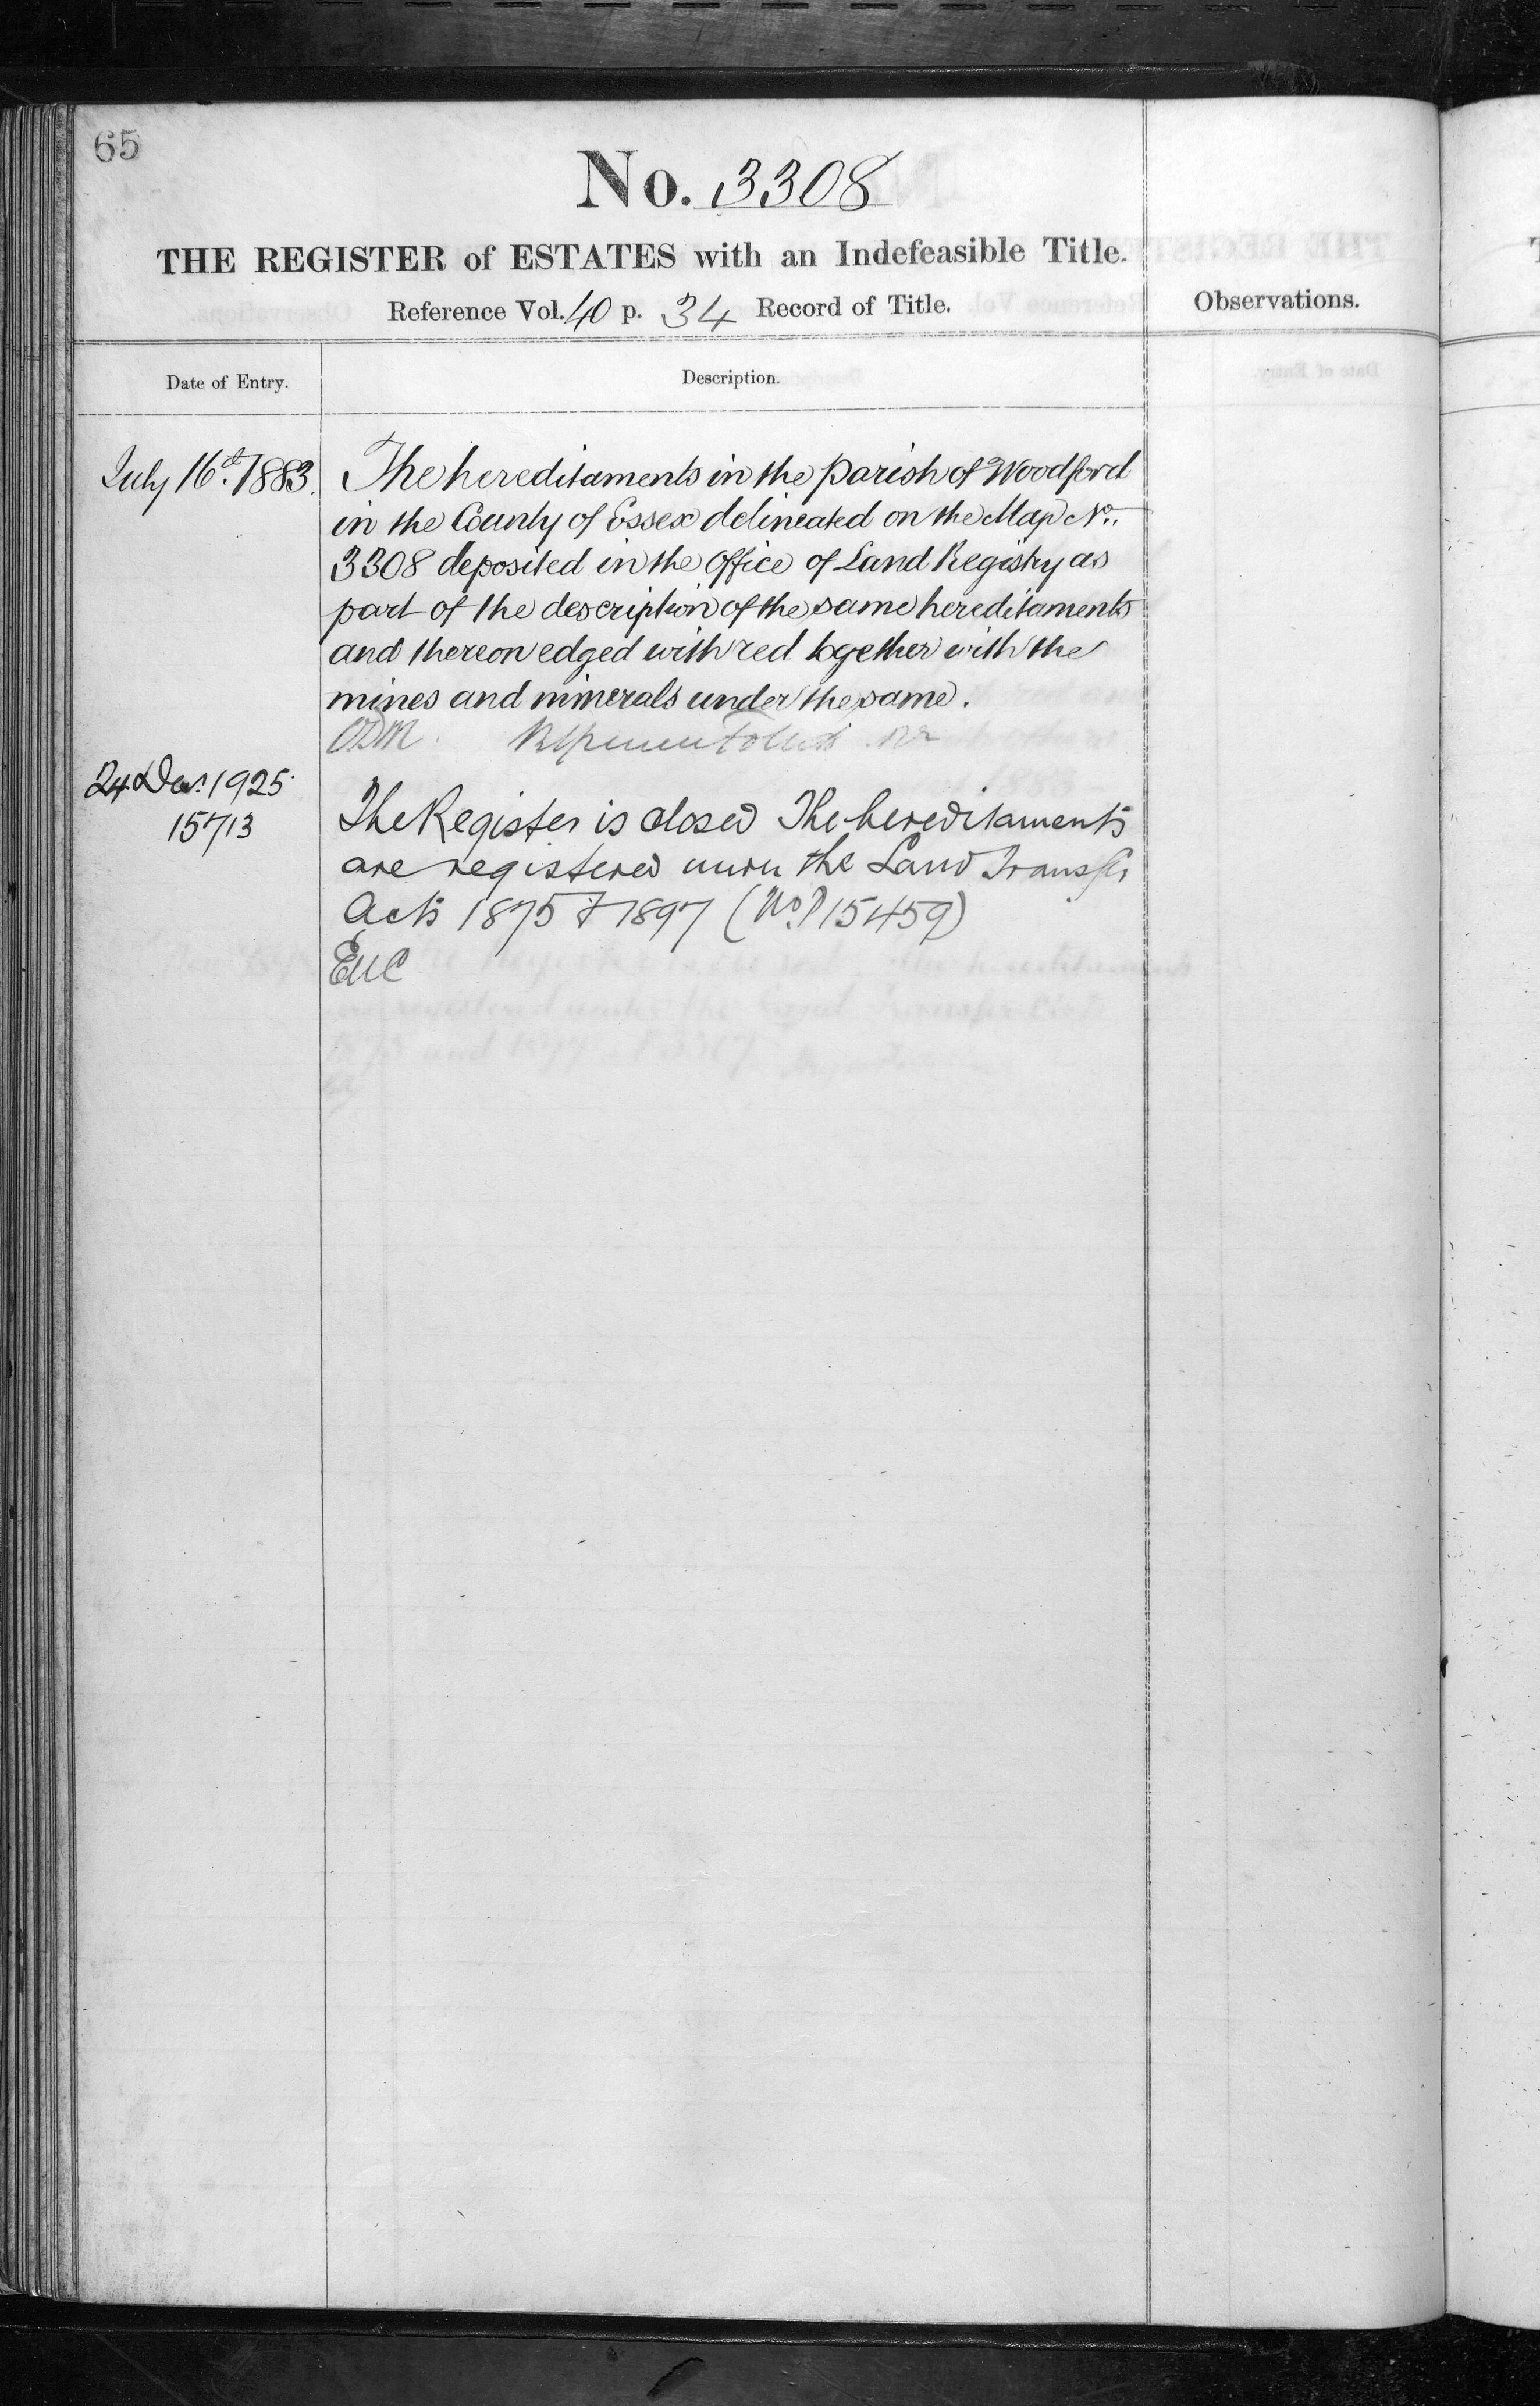 65
No. 3308
THE REGISTER of ESTATES with an Indefeasible Title.
Reference Vol. 40 p. 34 Record of Title.
Observations.
Date of Entry.
Description.
July 16th 1883.
The hereditaments in the parish of Woodford
in the County of Essex delineated on the Map No.
3308 deposited in the Office of Land Registry as
part of the description of the same hereditaments
and thereon edged with red together with the
mines and minerals under the same.
24 Dec. 1925
15713
The Register is closed The hereditaments
are registered under the Land Transfer
Acts 1875 & 1897 (No. P15459)